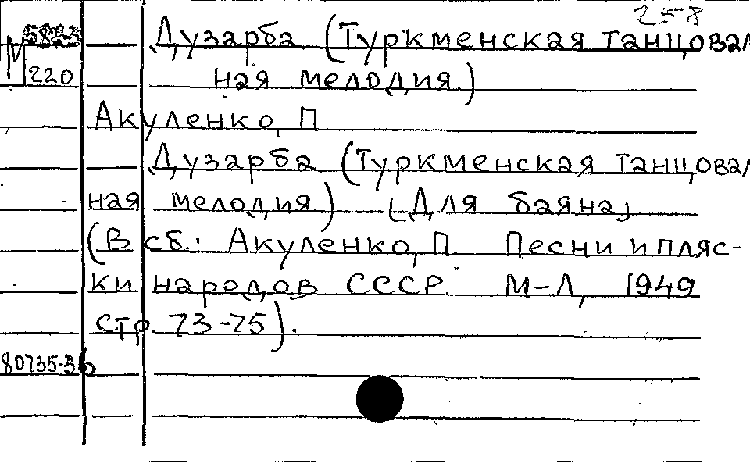 258
Дузарба (Туркменская танцовал
220
ная мелодия.)
Акуленко, П
Дузарба (Туркменская танцовал
ная мелодия) [Для баяна]
(В сб.: Акуленко, П. Песни и пляс-
ки народов СССР. М-Л, 1949
стр. 73-75).
80735-36